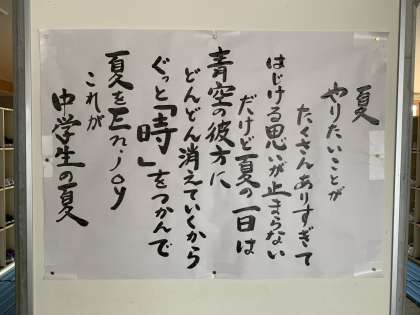 夏
やりたいことが
たくさんありすぎて
はじける思いが止まらない
だけど夏の一日は
青空の彼方に
どんどん消えていくから
ぐっと「時」をつかんで
夏をEnjoy
これが
中学生の夏